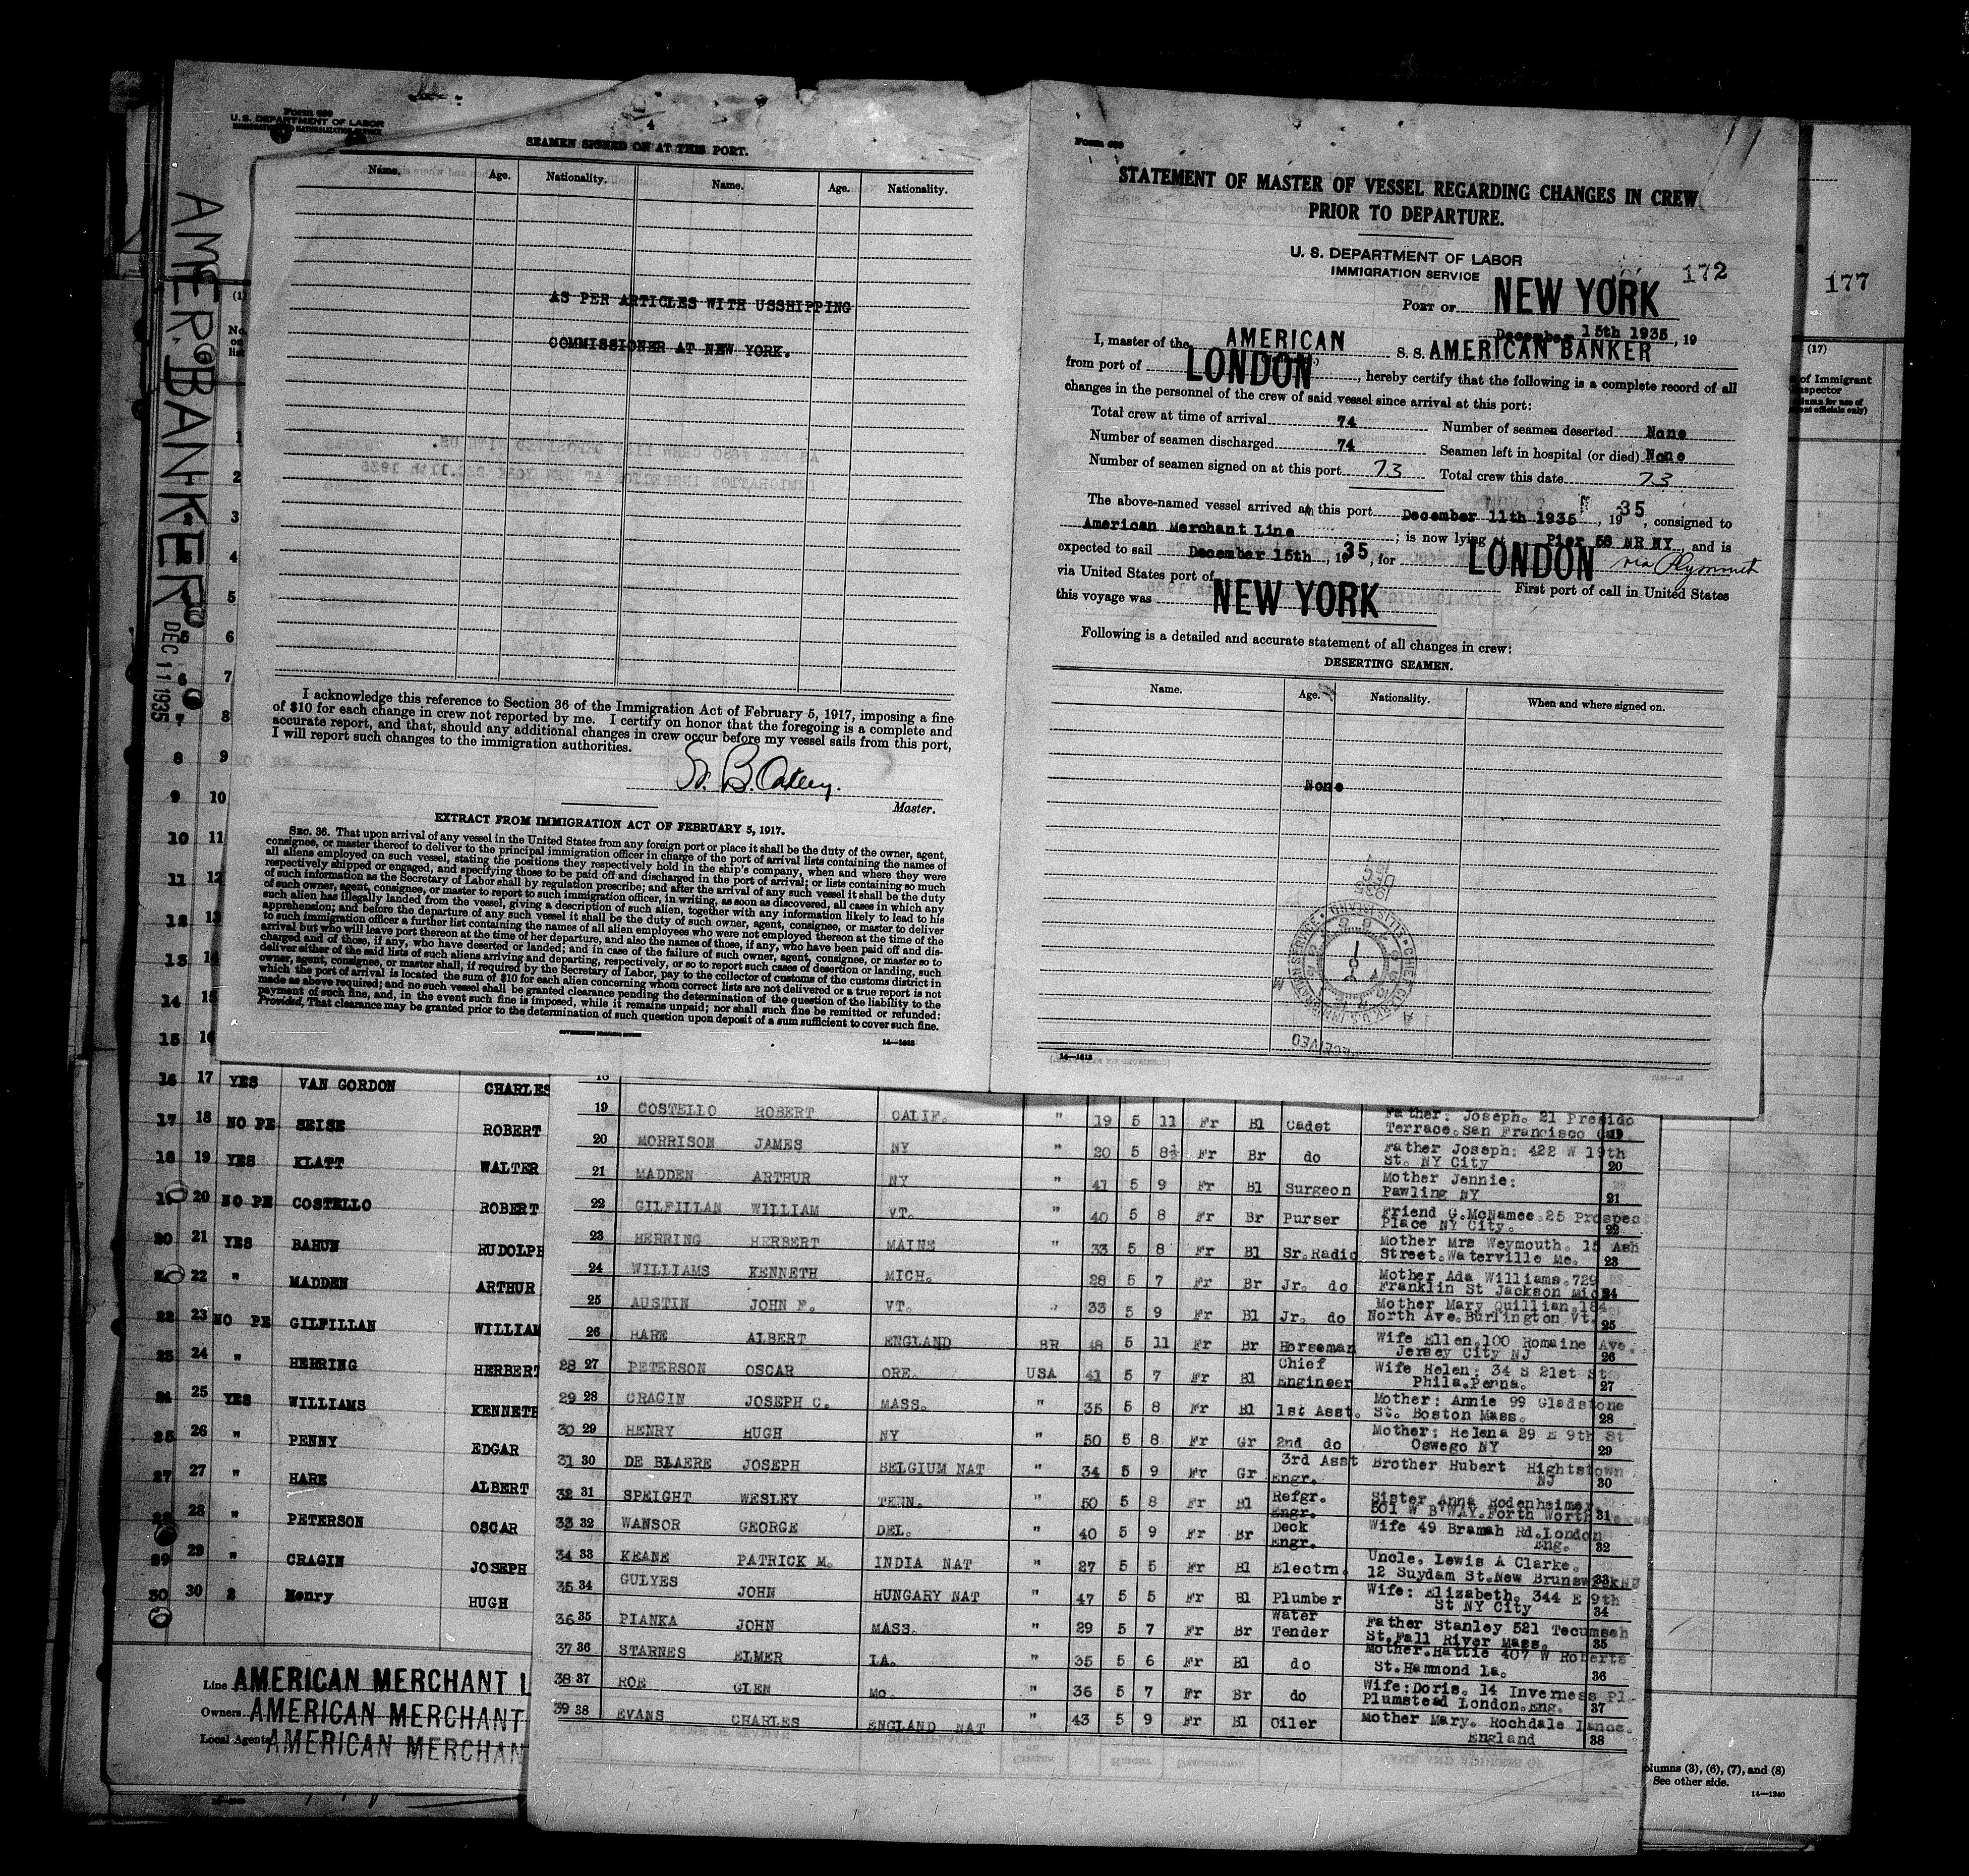 Form 680
U. S. DEPARTMENT OF LABOR
IMMIGRATION AND NATURALIZATION SERVICE
AMER. BANKER DEC 11 1935
4
SEAMEN SIGNED ON AT THIS PORT.
Name. Age. Nationality. Name. Age. Nationality.
AS PER ARTICLES WITH USSHIPPING
COMMISSIONER AT NEW YORK.
I acknowledge this reference to Section 36 of the Immigration Act of February 5, 1917, imposing a fine
of $10 for each change in crew not reported by me. I certify on honor that the foregoing is a complete and
accurate report, and that, should any additional changes in crew occur before my vessel sails from this port,
I will report such changes to the immigration authorities.
Master.
EXTRACT FROM IMMIGRATION ACT OF FEBRUARY 5, 1917.
SEC. 36. That upon arrival of any vessel in the United States from any foreign port or place it shall be the duty of the owner, agent,
consignee, or master thereof to deliver to the principal immigration officer in charge of the port of arrival lists containing the names of
all aliens employed on such vessel, stating the positions they respectively hold in the ship's company, when and where they were
respectively shipped or engaged, and specifying those to be paid off and discharged in the port of arrival; or lists containing so much
of such information as the Secretary of Labor shall by regulation prescribe; and after the arrival of any such vessel it shall be the duty
of such owner, agent, consignee, or master to report to such immigration officer, in writing, as soon as discovered, all cases in which any
such alien has illegally landed from the vessel, giving a description of such alien, together with any information likely to lead to his
apprehension; and before the departure of any such vessel it shall be the duty of such owner, agent, consignee, or master to deliver
to such immigration officer a further list containing the names of all alien employees who were not employed thereon at the time of the
arrival but who will leave port thereon at the time of her departure, and also the names of those, if any, who have been paid off and dis-
charged and of those, if any, who have deserted or landed; and in case of the failure of such owner, agent, consignee, or master so to
deliver either of the said lists of such aliens arriving and departing, respectively, or so to report such cases of desertion or landing, such
owner, agent, consignee, or master shall, if required by the Secretary of Labor, pay to the collector of customs of the customs district in
which the port of arrival is located the sum of $10 for each alien concerning whom correct lists are not delivered or a true report is not
made as above required; and no such vessel shall be granted clearance pending the determination of the question of the liability to the
payment of such fine, and, in the event such fine is imposed, while it remains unpaid; nor shall such fine be remitted or refunded:
Provided, That clearance may be granted prior to the determination of such question upon deposit of a sum sufficient to cover such fine.
14—1613
Form 680
STATEMENT OF MASTER OF VESSEL REGARDING CHANGES IN CREW
PRIOR TO DEPARTURE.
U. S. DEPARTMENT OF LABOR
IMMIGRATION SERVICE
172
177
PORT OF NEW YORK
December 15th 1935, 19
I, master of the AMERICAN S. S. AMERICAN BANKER
from port of LONDON, hereby certify that the following is a complete record of all
changes in the personnel of the crew of said vessel since arrival at this port:
Total crew at time of arrival 74 Number of seamen deserted None
Number of seamen discharged 74 Seamen left in hospital (or died) None
Number of seamen signed on at this port 73 Total crew this date 73
The above-named vessel arrived at this port December 11th 1935, 19 35, consigned to
American Merchant Line; is now lying at Pier 58 NR NY, and is
expected to sail December 15th, 19 35, for LONDON via Plymouth
via United States port of First port of call in United States
this voyage was NEW YORK
Following is a detailed and accurate statement of all changes in crew:
DESERTING SEAMEN.
Name. Age. Nationality. When and where signed on.
None
14—1613
(17)
of Immigrant
Inspector
(1)
No.
on
list
16 17 YES VAN GORDON CHARLES
17 18 NO PE SEISE ROBERT
18 19 YES KLATT WALTER
19 20 NO PE COSTELLO ROBERT
20 21 YES BAHUN RUDOLPH
22 " MADDEN ARTHUR
22 23 NO PE GILFILLAN WILLIAM
23 24 " HERRING HERBERT
24 25 YES WILLIAMS KENNETH
25 26 " PENNY EDGAR
27 27 " HARE ALBERT
28 28 " PETERSON OSCAR
29 29 " CRAGIN JOSEPH
30 30 2 Henry HUGH
Line AMERICAN MERCHANT L
Owners AMERICAN MERCHANT
Local Agents AMERICAN MERCHAN
18
19 COSTELLO ROBERT CALIF. " 19 5 11 Fr Bl Cadet Father: Joseph. 21 Presido
Terrace.San Francisco Cal 19
20 MORRISON JAMES NY " 20 5 8½ Fr Br do Father Joseph: 422 W 19th
St. NY City 20
21 MADDEN ARTHUR NY " 41 5 9 Fr Bl Surgeon Mother Jennie:
Pawling NY 21
22 GILFILLAN WILLIAM VT. " 40 5 8 Fr Br Purser Friend G.McNamee.25 Prospec
Place NY City. 22
23 HERRING HERBERT MAINE " 33 5 8 Fr Bl Sr.Radio Mother Mrs Weymouth. 15 Ash
Street.Waterville Me. 23
24 WILLIAMS KENNETH MICH. 28 5 7 Fr Br Jr. do Mother Ada Williams.729
Franklin St Jackson Mich 24
25 AUSTIN JOHN F. VT. " 33 5 9 Fr Bl Jr. do Mother Mary Quillian.184
North Ave.Burlington Vt. 25
26 HARE ALBERT ENGLAND BR 48 5 11 Fr Br Horseman Wife Ellen.100 Romaine Ave.
Jersey City NJ 26
28 27 PETERSON OSCAR ORE. USA 41 5 7 Fr Bl Chief Engineer Wife Helen: 34 S 21st St
Phila.Penna. 27
29 28 CRAGIN JOSEPH C. MASS. " 35 5 8 Fr Bl 1st Asst. Mother: Annie 99 Gladstone
St. Boston Mass. 28
30 29 HENRY HUGH NY " 50 5 8 Fr Gr 2nd do Mother: Helena 29 E 9th St
Oswego NY 29
31 30 DE BLAERE JOSEPH BELGIUM NAT " 34 5 9 Fr Gr 3rd Asst Engr. Brother Hubert Hightstown
NJ 30
32 31 SPEIGHT WESLEY TENN. " 50 5 8 Fr Bl Refgr. Engr. Sister Anna Rodenheimer.
501 W B'WAY.Forth Worth Texas 31
33 32 WANSOR GEORGE DEL. " 40 5 9 Fr Br Deck Engr. Wife 49 Bramah Rd.London
Eng. 32
34 33 KEANE PATRICK M. INDIA NAT " 27 5 5 Fr Bl Electrn. Uncle. Lewis A Clarke.
12 Suydam St.New Brunswick NJ 33
35 34 GULYES JOHN HUNGARY NAT " 47 5 5 Fr Bl Plumber Wife: Elizabeth. 344 E 9th
St NY City 34
36 35 PIANKA JOHN MASS. " 29 5 7 Fr Br Water Tender Father Stanley 521 Tecumseh
St.Fall River Mass. 35
37 36 STARNES ELMER LA. " 35 5 6 Fr Bl do Mother.Hattie 407 W Roberts
St.Hammond La. 36
38 37 ROE GLEN Mo. " 36 5 7 Fr Br do Wife:Doris. 14 Inverness Pl.
Plumstead London.Eng. 37
39 38 EVANS CHARLES ENGLAND NAT " 43 5 9 Fr Bl Oiler Mother Mary. Rochdale Lancs.
England 38
olumns (3), (6), (7), and (8)
See other side.
14—1240